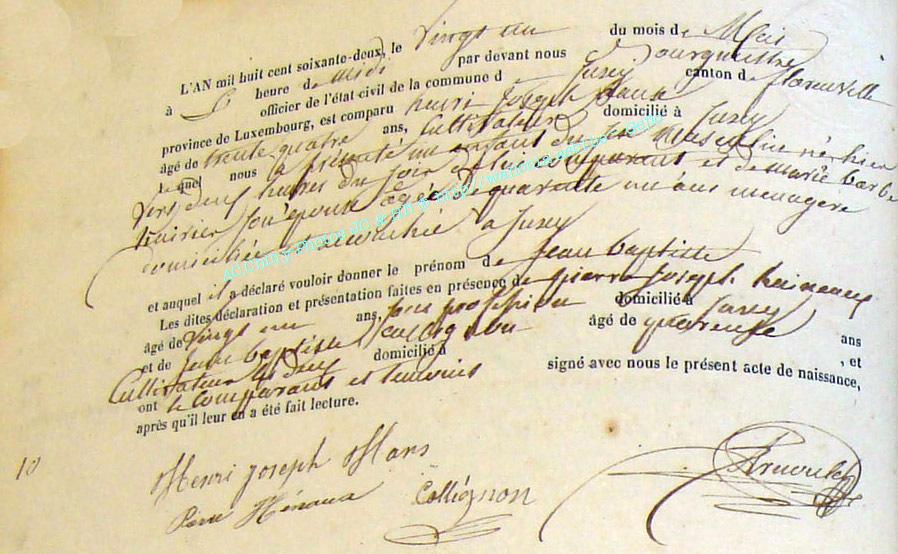 L'AN mil huit cent soixante-deux, le vingt un du mois de Mai
à heure de midi par devant nous
officier de l'état civil de la commune de Jusey canton de florenville
province de Luxembourg, est comparu henri Joseph
âgé de trente quatre ans, Cultivateur domicilié à Jusey
lequel nous a présenté un enfant du sexe Masculin né hier
vers heures du soir de lui comparant et de marie barbe
son épouse âgée de quarante un ans menagère
domiciliée à Jusey
et auquel il a déclaré vouloir donner le prénom de Jean baptiste
Les dites déclaration et présentation faites en présence de pierre Joseph
âgé de vingt un ans, sans profession domicilié à Jusey
et de Jean baptiste collignon âgé de quarante ans
Cultivateur domicilié à Jusey , et
ont le comparant et temoins signé avec nous le présent acte de naissance,
après qu'il leur en a été fait lecture.
10
Henri joseph Hans
Collignon